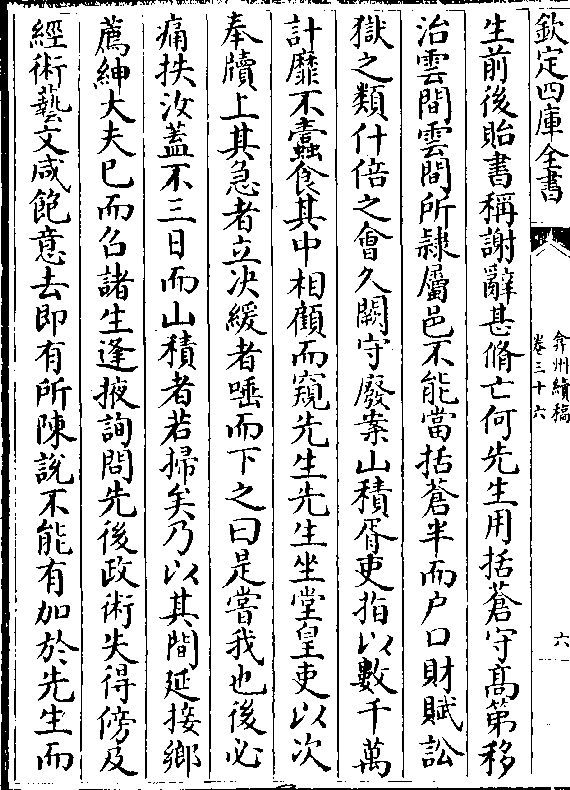 欽定四庫全書
弇州續稿
卷三十六
六
生前後貽書稱謝辭甚脩亡何先生用括蒼守髙第移
治雲間雲間所隷屬邑不能當括蒼半而户口財賦訟
獄之類什倍之會久闕守廢案山積胥吏指以數千萬
計靡不蠧食其中相顧而窺先生先生坐堂皇吏以次
奉牘上其急者立决緩者唾而下之曰是嘗我也後必
痛抶汝蓋不三日而山積者若掃矣乃以其間延接鄉
薦紳大夫已而召諸生逢掖詢問先後政術失得傍及
經術藝文咸飽意去即有所陳說不能有加於先生而